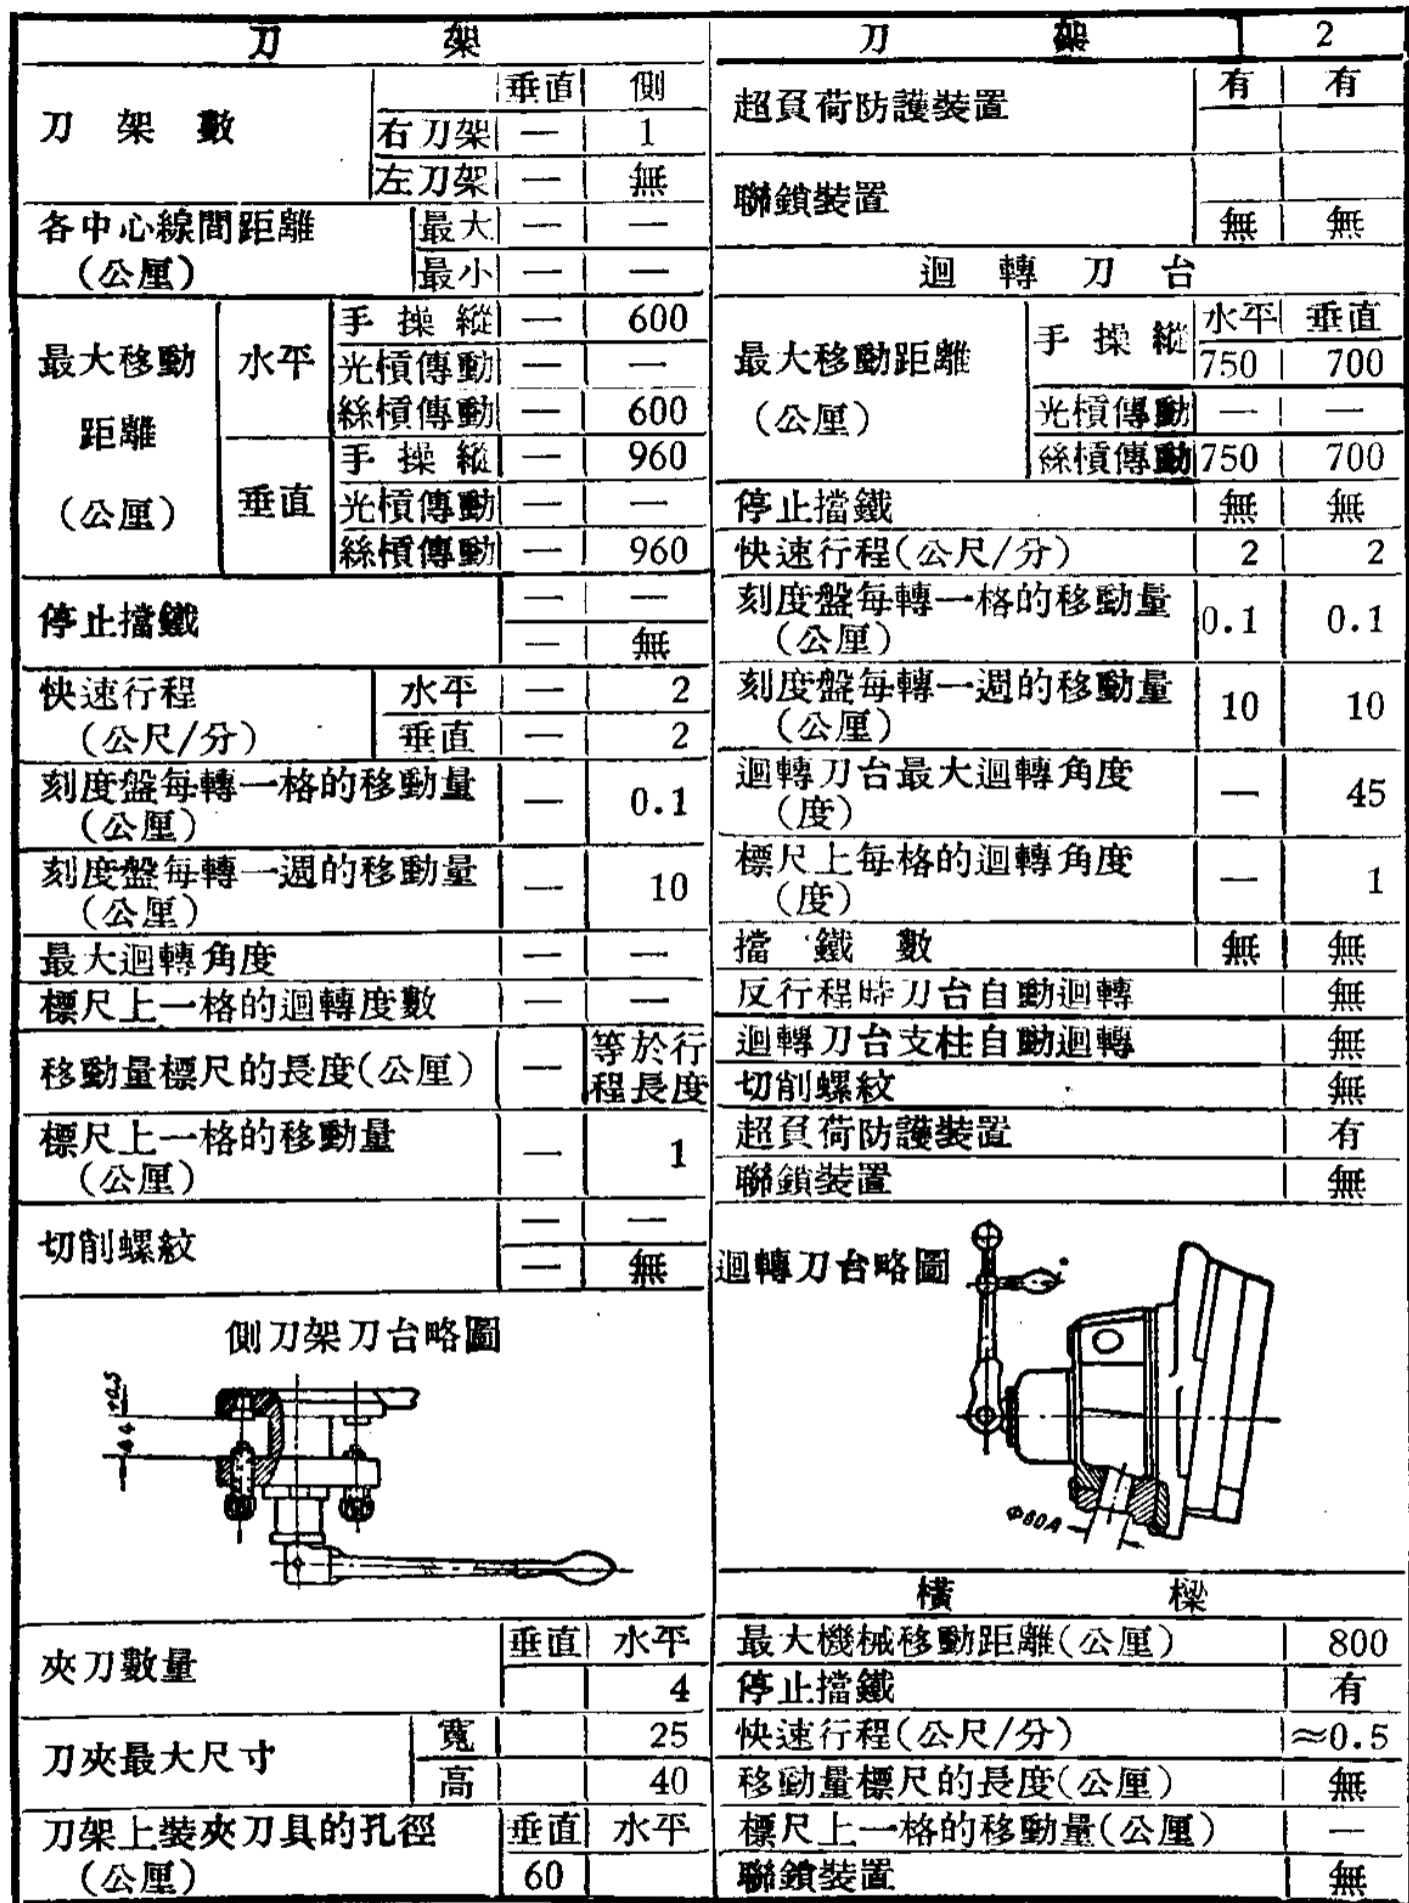 刀 架
垂直 側
刀 架 數 右刀架 — 1
左刀架 — 無
各中心線間距離 最大 — —
(公厘) 最小 — —
最大移動 水平 手 操 縱 — 600
光槓傳動 — —
絲槓傳動 — 600
距離
垂直 手 操 縱 — 960
(公厘) 光槓傳動 — —
絲槓傳動 — 960
停止擋鐵 — —
— 無
快速行程 水平 — 2
(公尺/分) 垂直 — 2
刻度盤每轉一格的移動量 — 0.1
(公厘)
刻度盤每轉一週的移動量 — 10
(公厘)
最大迴轉角度 — —
標尺上一格的迴轉度數 — —
移動量標尺的長度(公厘) — 等於行
程長度
標尺上一格的移動量 — 1
(公厘)
切削螺紋 — —
— 無
側刀架刀台略圖
44 +0.5
夾刀數量 垂直 水平
4
刀夾最大尺寸 寬 25
高 40
刀架上裝夾刀具的孔徑 垂直 水平
(公厘) 60
刀 架 2
超負荷防護裝置 有 有
聯鎖裝置
無 無
迴 轉 刀 台
最大移動距離 手 操 縱 水平 垂直
750 700
(公厘) 光槓傳動 — —
絲槓傳動 750 700
停止擋鐵 無 無
快速行程(公尺/分) 2 2
刻度盤每轉一格的移動量 0.1 0.1
(公厘)
刻度盤每轉一週的移動量 10 10
(公厘)
迴轉刀台最大迴轉角度 — 45
(度)
標尺上每格的迴轉角度 — 1
(度)
擋 鐵 數 無 無
反行程時刀台自動迴轉 無
迴轉刀台支柱自動迴轉 無
切削螺紋 無
超負荷防護裝置 有
聯鎖裝置 無
迴轉刀台略圖
Φ60A
橫 樑
最大機械移動距離(公厘) 800
停止擋鐵 有
快速行程(公尺/分) ≈0.5
移動量標尺的長度(公厘) 無
標尺上一格的移動量(公厘) —
聯鎖裝置 無